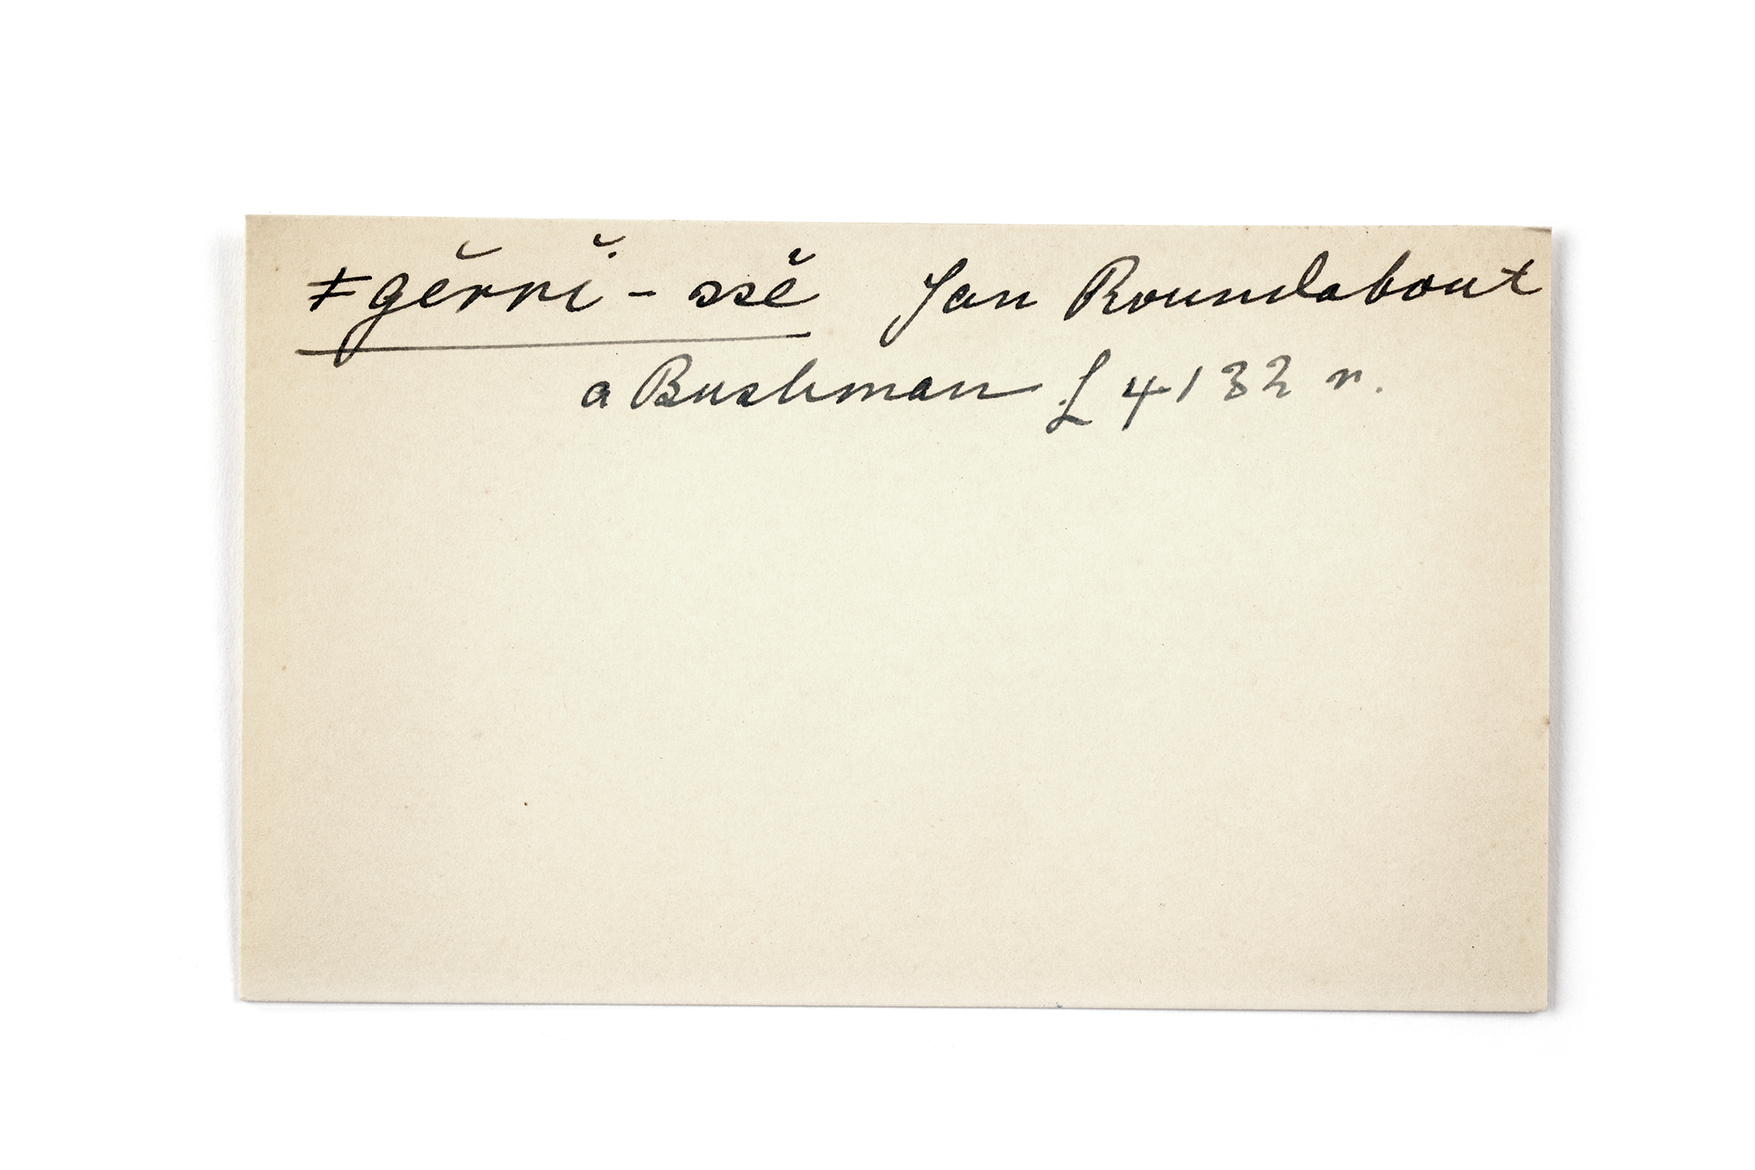 ǂgĕrrĭ - ssĕ Jan Roundabout
a Bushman £ 4132 r.